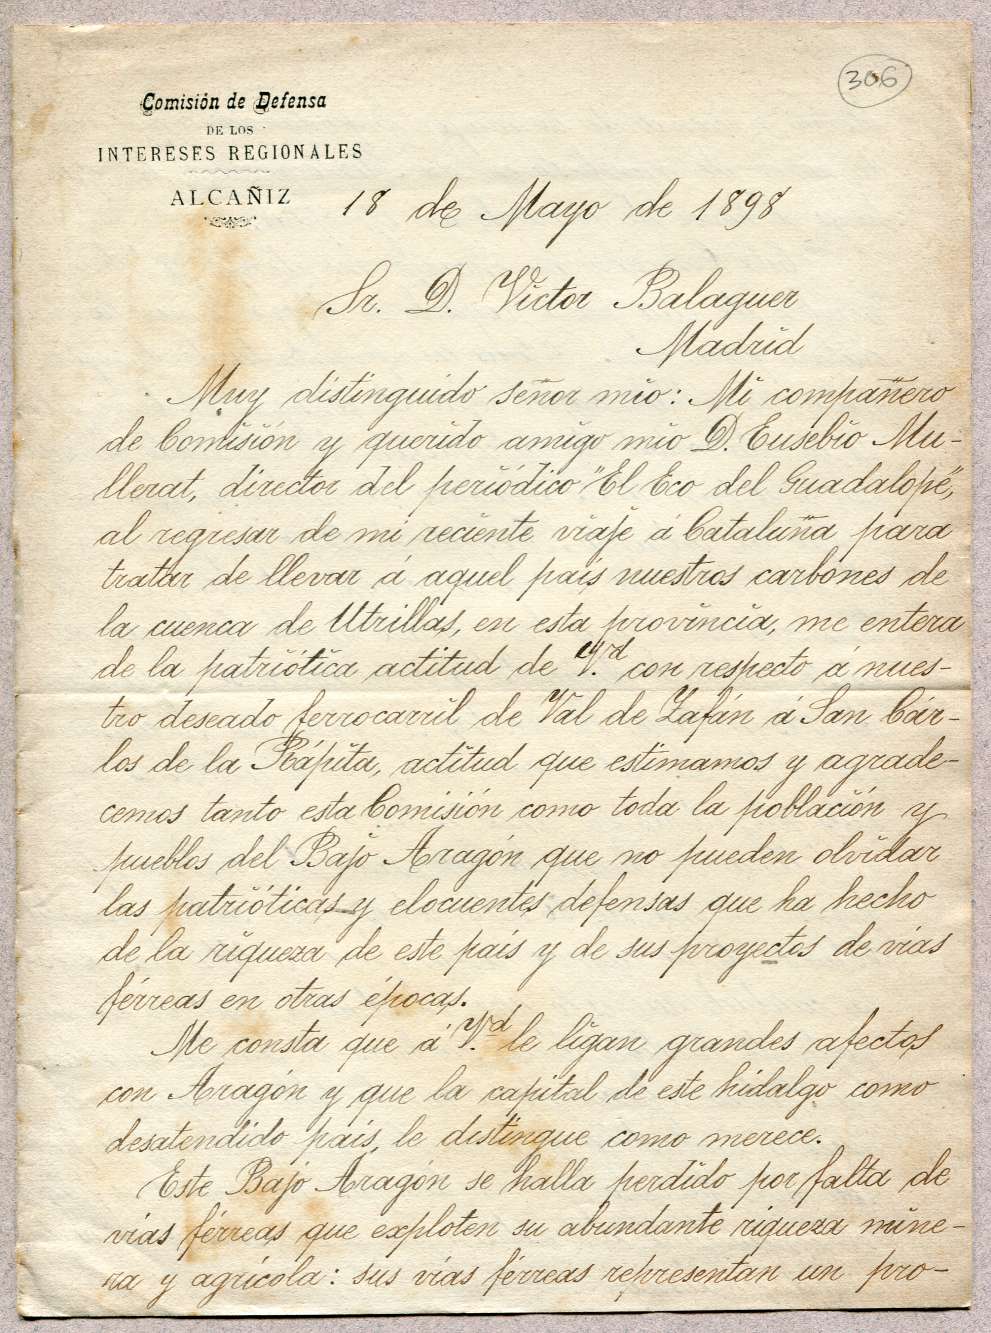 306
Comisión de Defensa
DE LOS
INTERESES REGIONALES
ALCAÑIZ
18 de Mayo de 1898
Sr. D. Víctor Balaguer
Madrid
Muy distinguido señor mio: Mi compañero
de Comisión y querido amigo mio D. Eusebio Mu-
llerat, director del periódico "El Eco del Guadalope",
al regresar de mi reciente viaje á Cataluña para
tratar de llevar á aquel país nuestros carbones de
la cuenca de Utrillas, en esta provincia, me entera
de la patriótica actitud de Vd. con respecto á nues-
tro deseado ferrocarril de Val de Zafán á San Cár-
los de la Rápita, actitud que estimamos y agrade-
cemos tanto esta Comisión como toda la población y
pueblos del Bajo Aragón que no pueden olvidar
las patrióticas y elocuentes defensas que ha hecho
de la riqueza de este país y de sus proyectos de vías
férreas en otras épocas.
Me consta que á Vd. le ligan grandes afectos
con Aragón y que la capital de este hidalgo como
desatendido país, le distingue como merece.
Este Bajo Aragón se halla perdido por falta de
vías férreas que exploten su abundante riqueza mine-
ra y agrícola: sus vías férreas representan un pro-